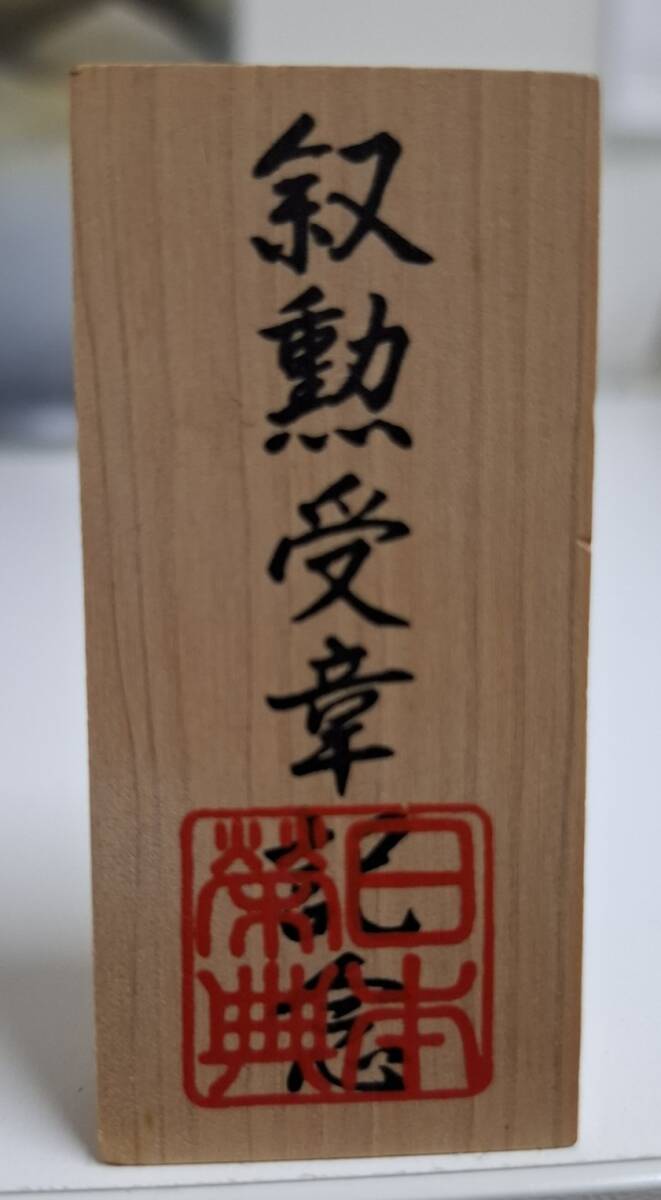 叙勲受章記念
日本
榮典